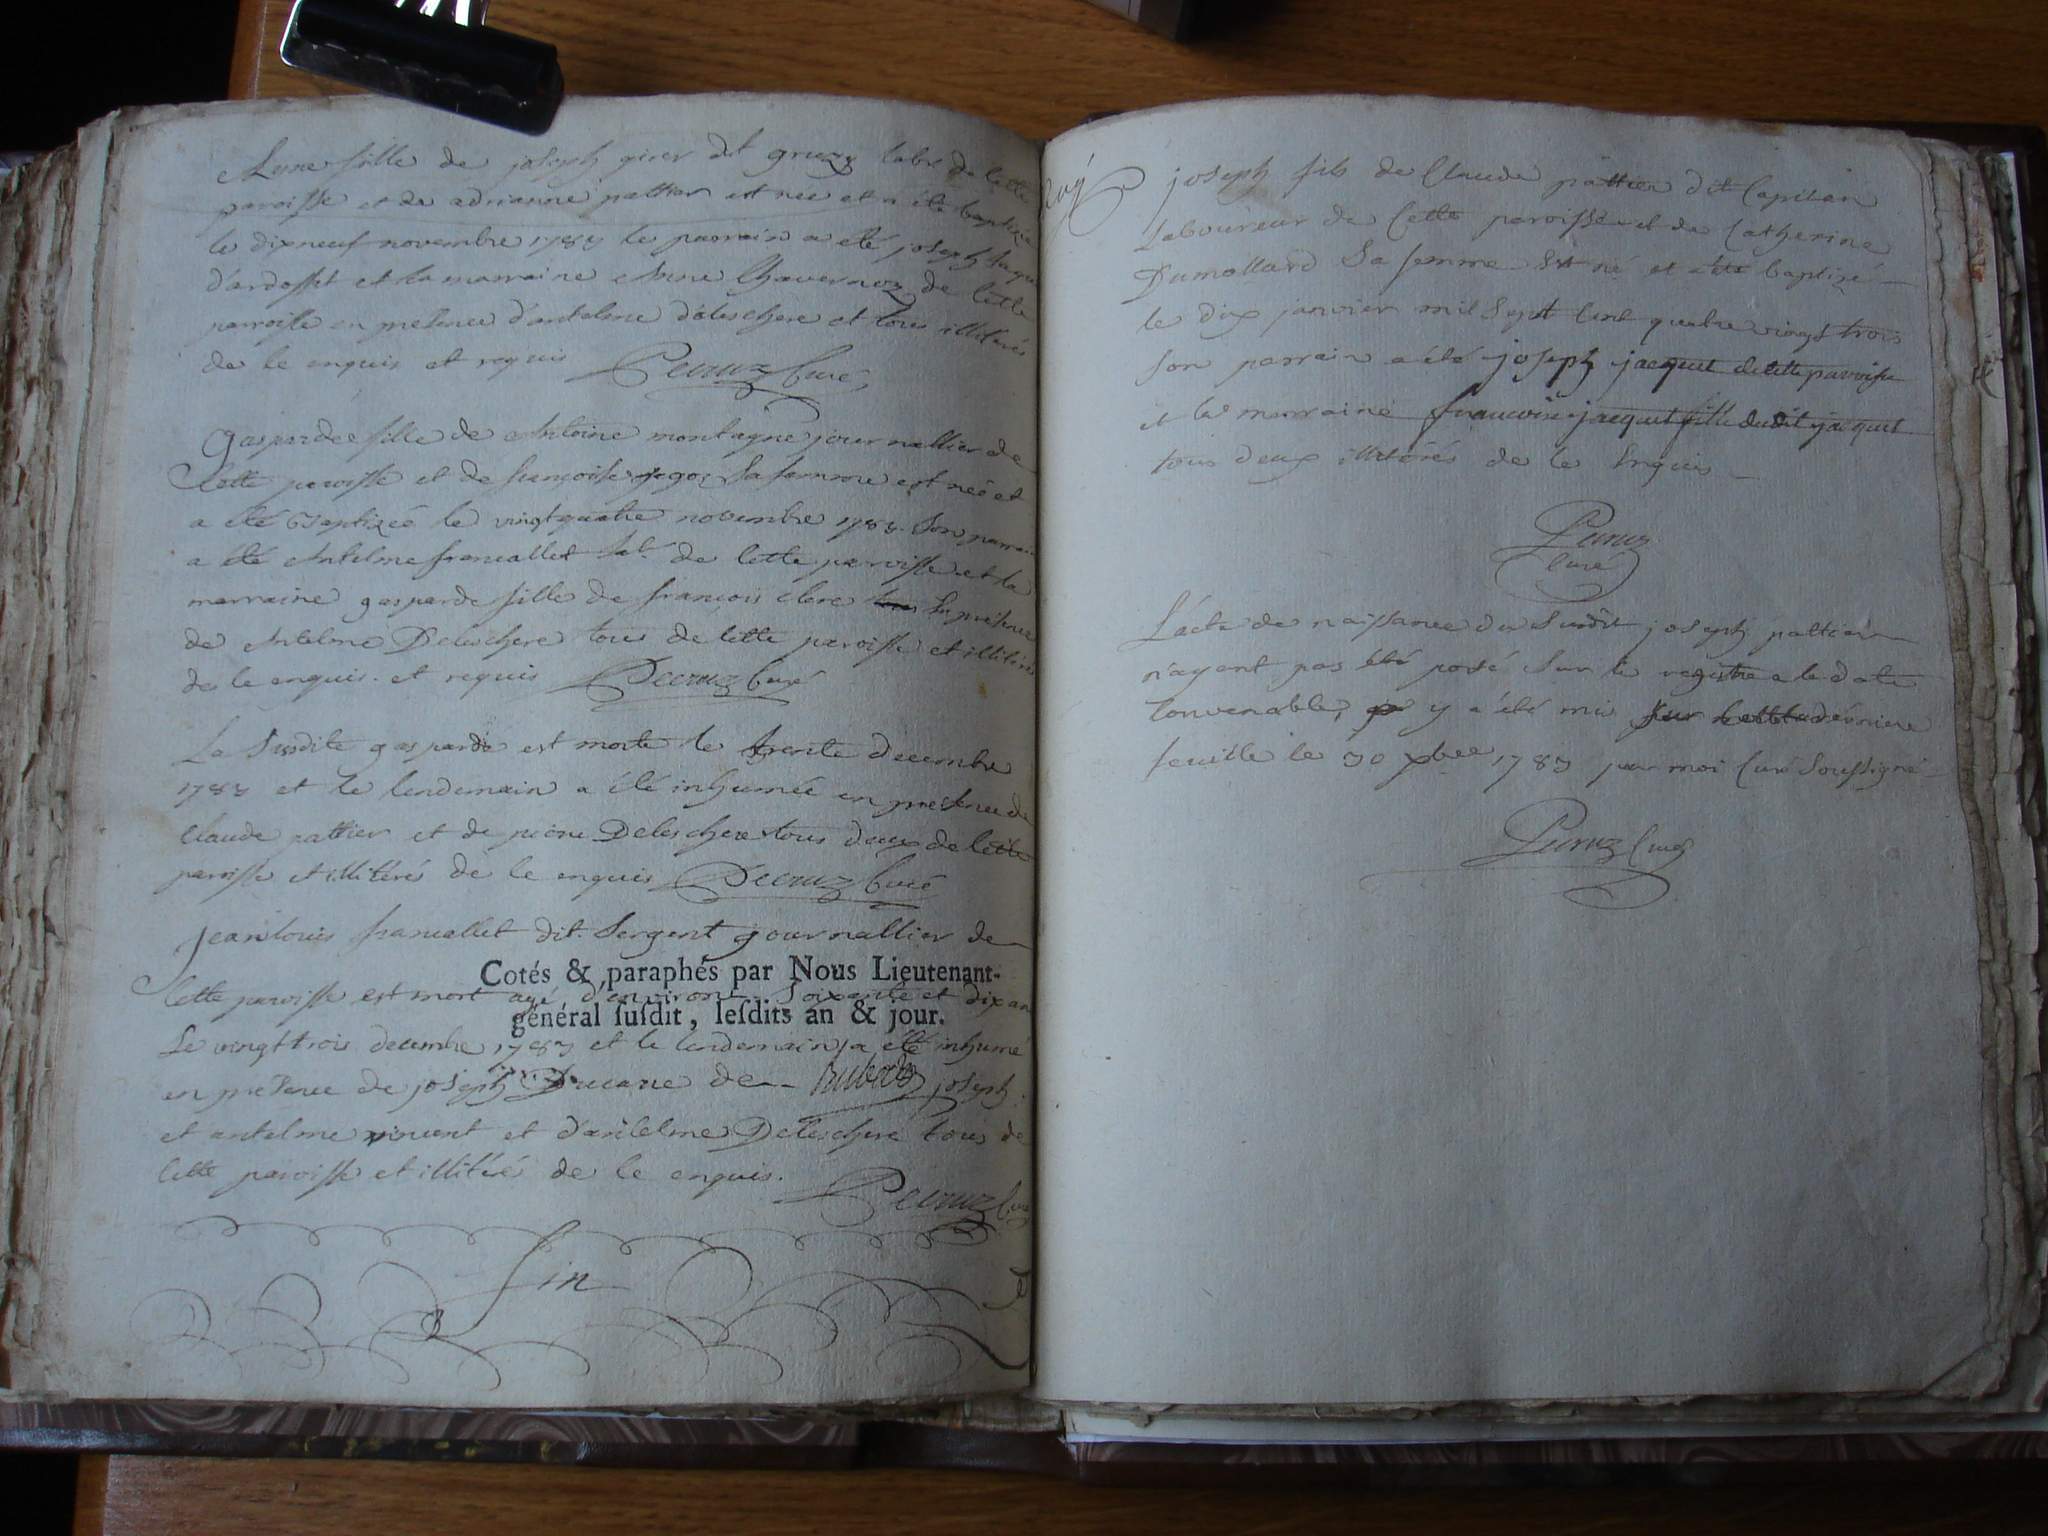 fille de joseph dit labr de cette
paroisse et de adrianne pattier est née et a été baptizée
le dixneuf novembre 1783 le parrain a été joseph
d'ardosset et la marraine de cette
parroisse en presence d'antelme d'eleschere et tous illitérés
de le enquis et requis Decruz Curé
gasparde fille de Antoine montagne journallier de
Cette paroisse et de françoise sa femme est née et
a été Baptizeé le vingtquatre novembre 1783. Son parrain
a été Antelme francallet labr de Cette paroisse et la
marraine gasparde fille de francois clerc En présence
de Antelme Deleschere tous de Cette paroisse et illitérés
de le enquis. et requis Decruz Curé
La Susdite gasparde est morte le trente decembre
1783 et le lendemain a été inhumée en presence de
Claude pattier et de pierre Deleschere tous deux de Cette
paroisse et illitéré de le enquis Decruz Curé
Jean louis francallet dit Sergent journallier de
Cotés & paraphés par Nous Lieutenant-
Cette paroisse est mort agé d'environt Soixante et dix an
général ſuſdit, leſdits an & jour.
Le vingttrois decembre 1783 et le lendemain a été inhumé
en presence de joseph Ducarre de joseph
et antelme vincent et d'antelme Deleschere tous de
Cette paroisse et illitéré de le enquis.
Decruz Curé
fin
joseph fils de Claude pattier dit Capitan
Laboureur de Cette paroisse et de Catherine
Dumollard Sa femme Est né et a été baptizé
le dix janvier mil Sept Cent quatre vingt trois
Son parrain a été joseph jacquet de cette paroisse
et la marraine francoise jacquet fille dudit jacquet
tous deux illitérés de le Enquis
Decruz
Curé
L'acte de naissance du Susdit joseph pattier
n'ayent pas été posé Sur le registre a la date
Convenable, y a été mis Sur cette derniere
feuille le 30 xbre 1783 par moi Curé Soussigné
Decruz Curé